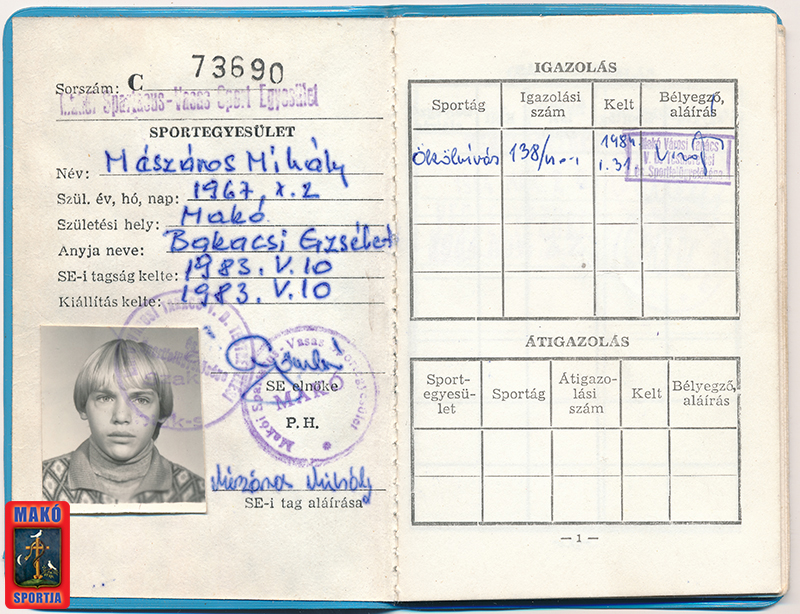 Sorszám: C 73690
Makói Spartacus-Vasas Sport Egyesület
SPORTEGYESÜLET
Név: Mászáros Mihály
Szül. év, hó, nap: 1967. X. 2
Születési hely: Makó
Anyja neve: Bakacsi Erzsébet
SE-i tagság kelte: 1983. V. 10
Kiállítás kelte: 1983. V. 10
SE elnöke
MAKÓ
P. H.
Mészáros Mihály
SE-i tag aláírása
MAKÓ
SPORTJA
IGAZOLÁS
Sportág
Igazolási szám
Kelt
Bélyegző, aláírás
Ökölvívás 138/ 1984. I. 31.
Makó Városi Tanács
V. B. Testnevelési
és Sportfelügyelősége
ÁTIGAZOLÁS
Sport-
egyesü-
let
Sportág
Átigazo-
lási
szám
Kelt
Bélyegző,
aláírás
— 1 —